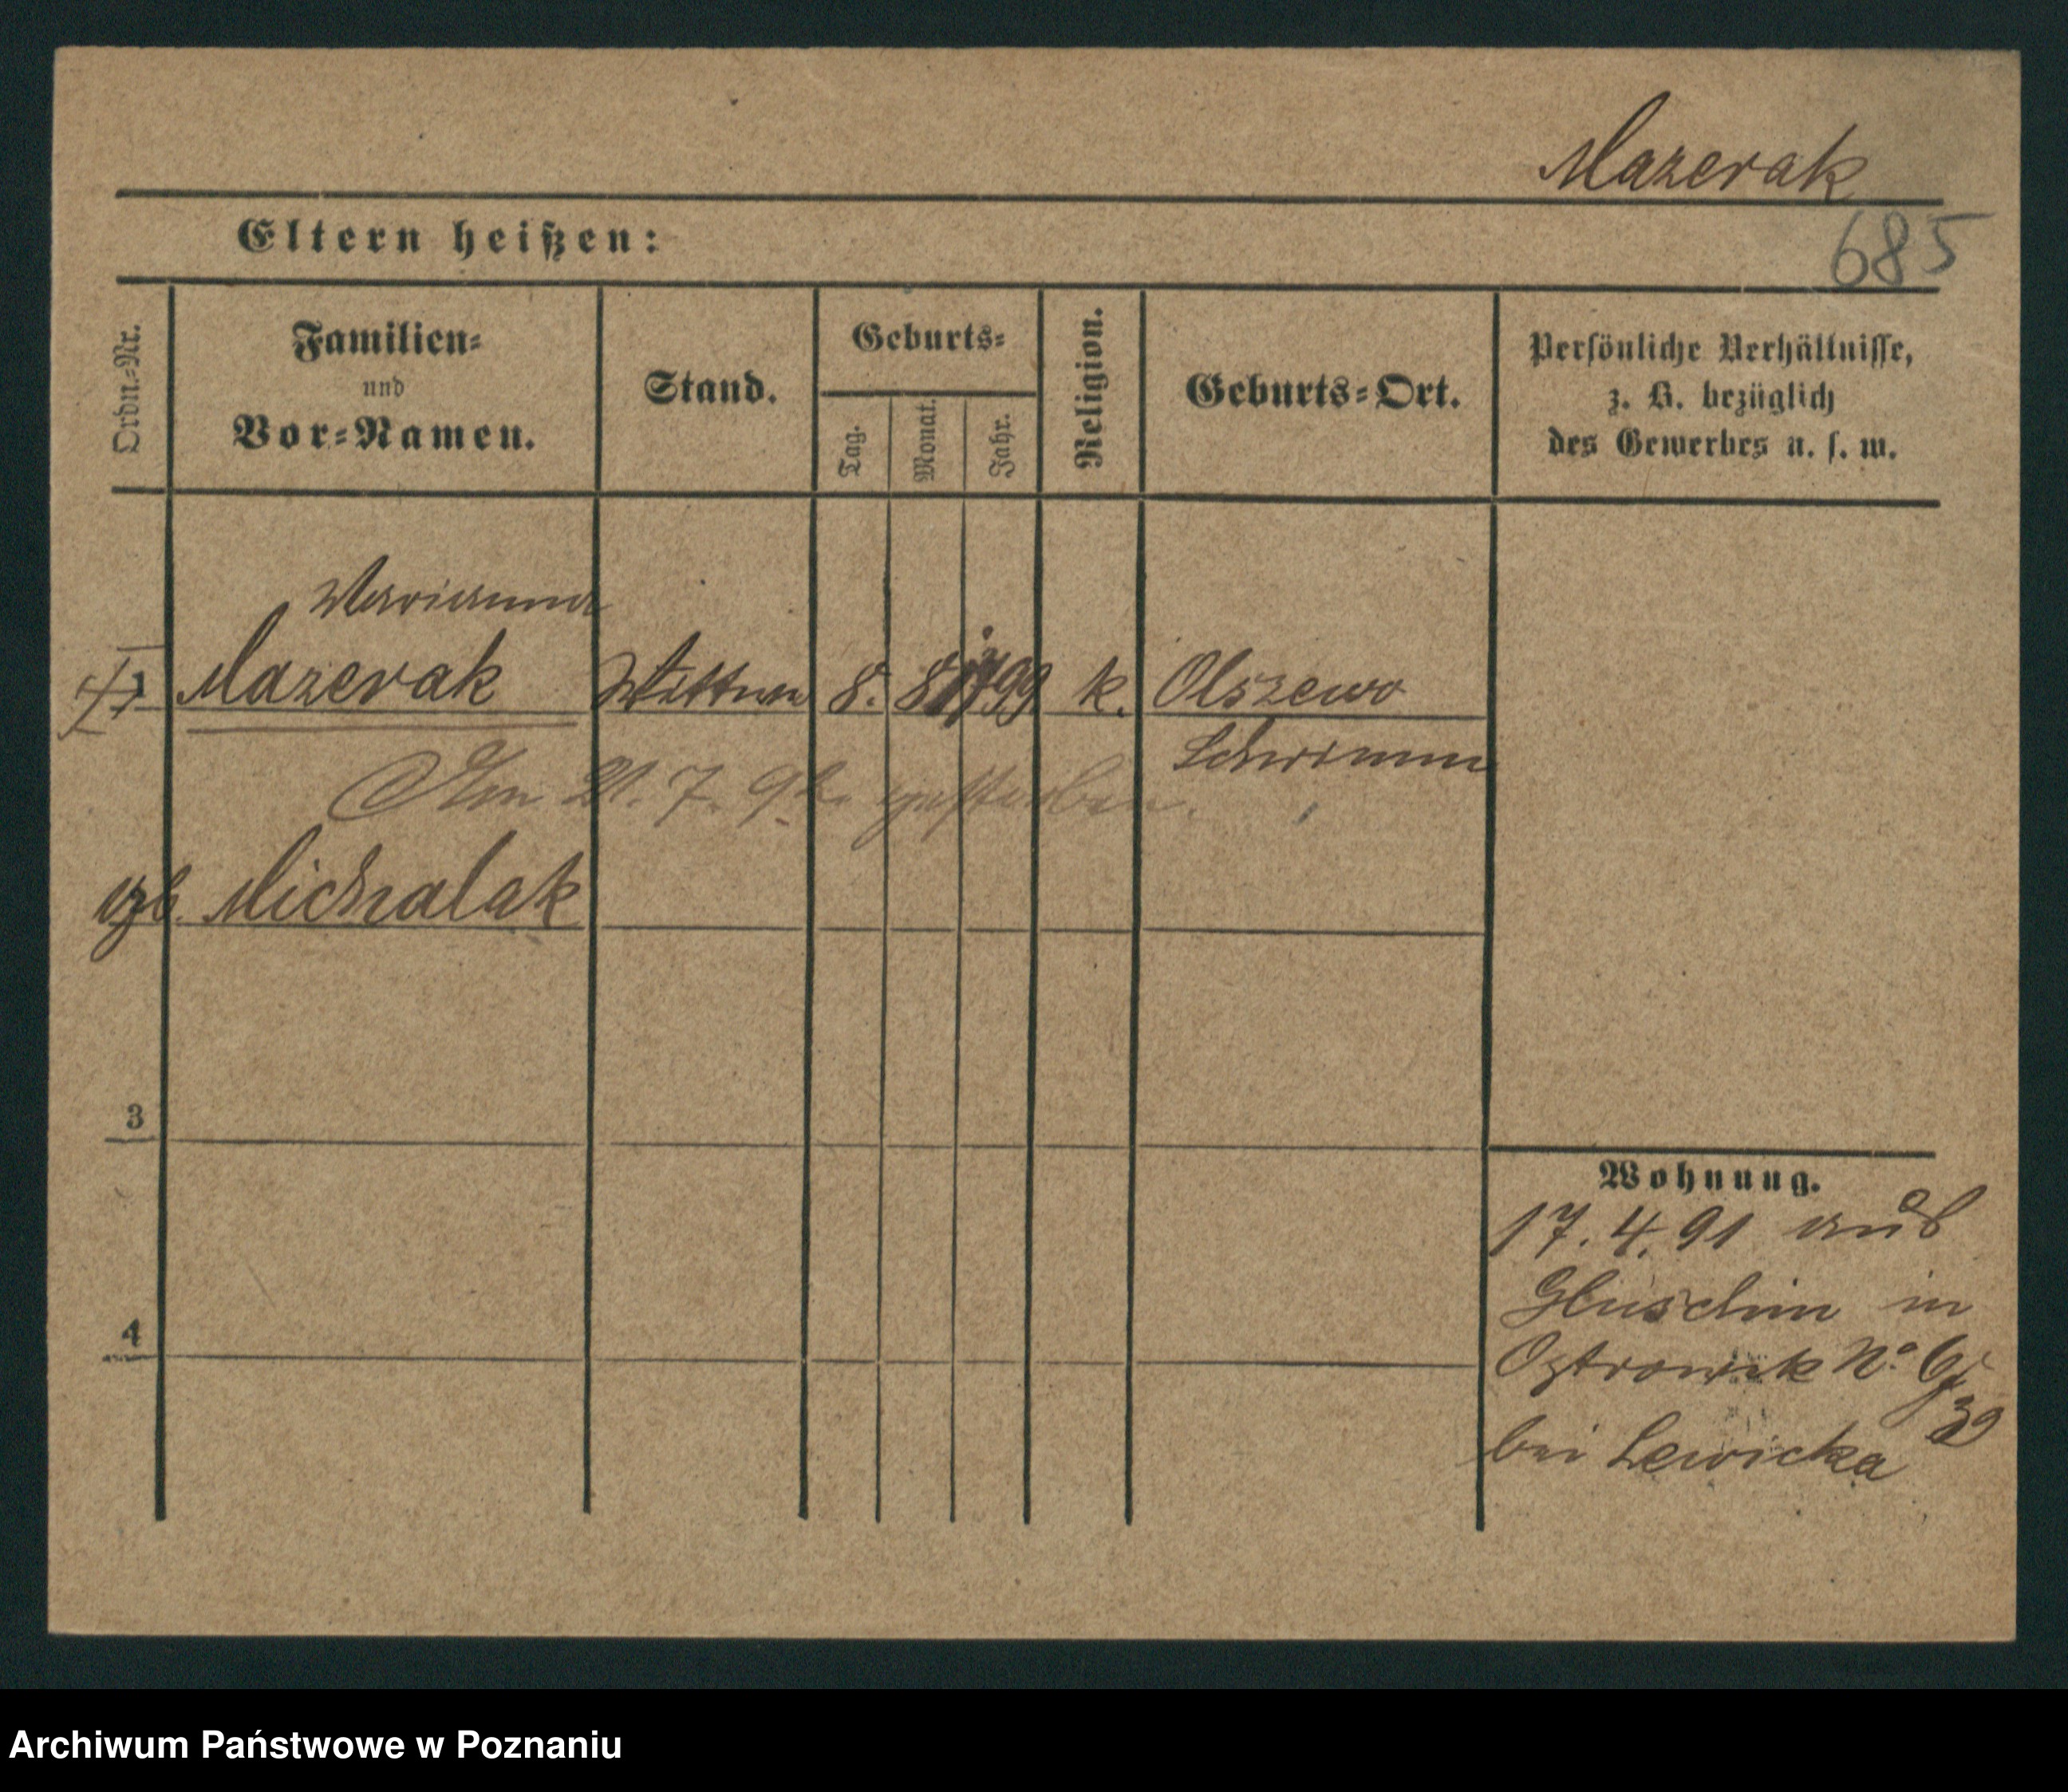 Mazerak
Eltern heißen:
685
Ordn.-Nr.
Familien-
und
Vor-Namen.
Stand.
Geburts-
Tag.
Monat.
Jahr.
Religion.
Geburts-Ort.
Persönliche Verhältnisse,
z. B. bezüglich
des Gewerbes u. s. w.
Marianna
Mazerak Wittwe 8. 8 99 k. Olszewo
Schrimm
Am 21. 7. 92 gestorben.
geb. Michalak
3
4
Wohnung.
17. 4. 91 aus
Gluschin in
Ostrowek No 6/
39
bei Lewicka
Archiwum Państwowe w Poznaniu